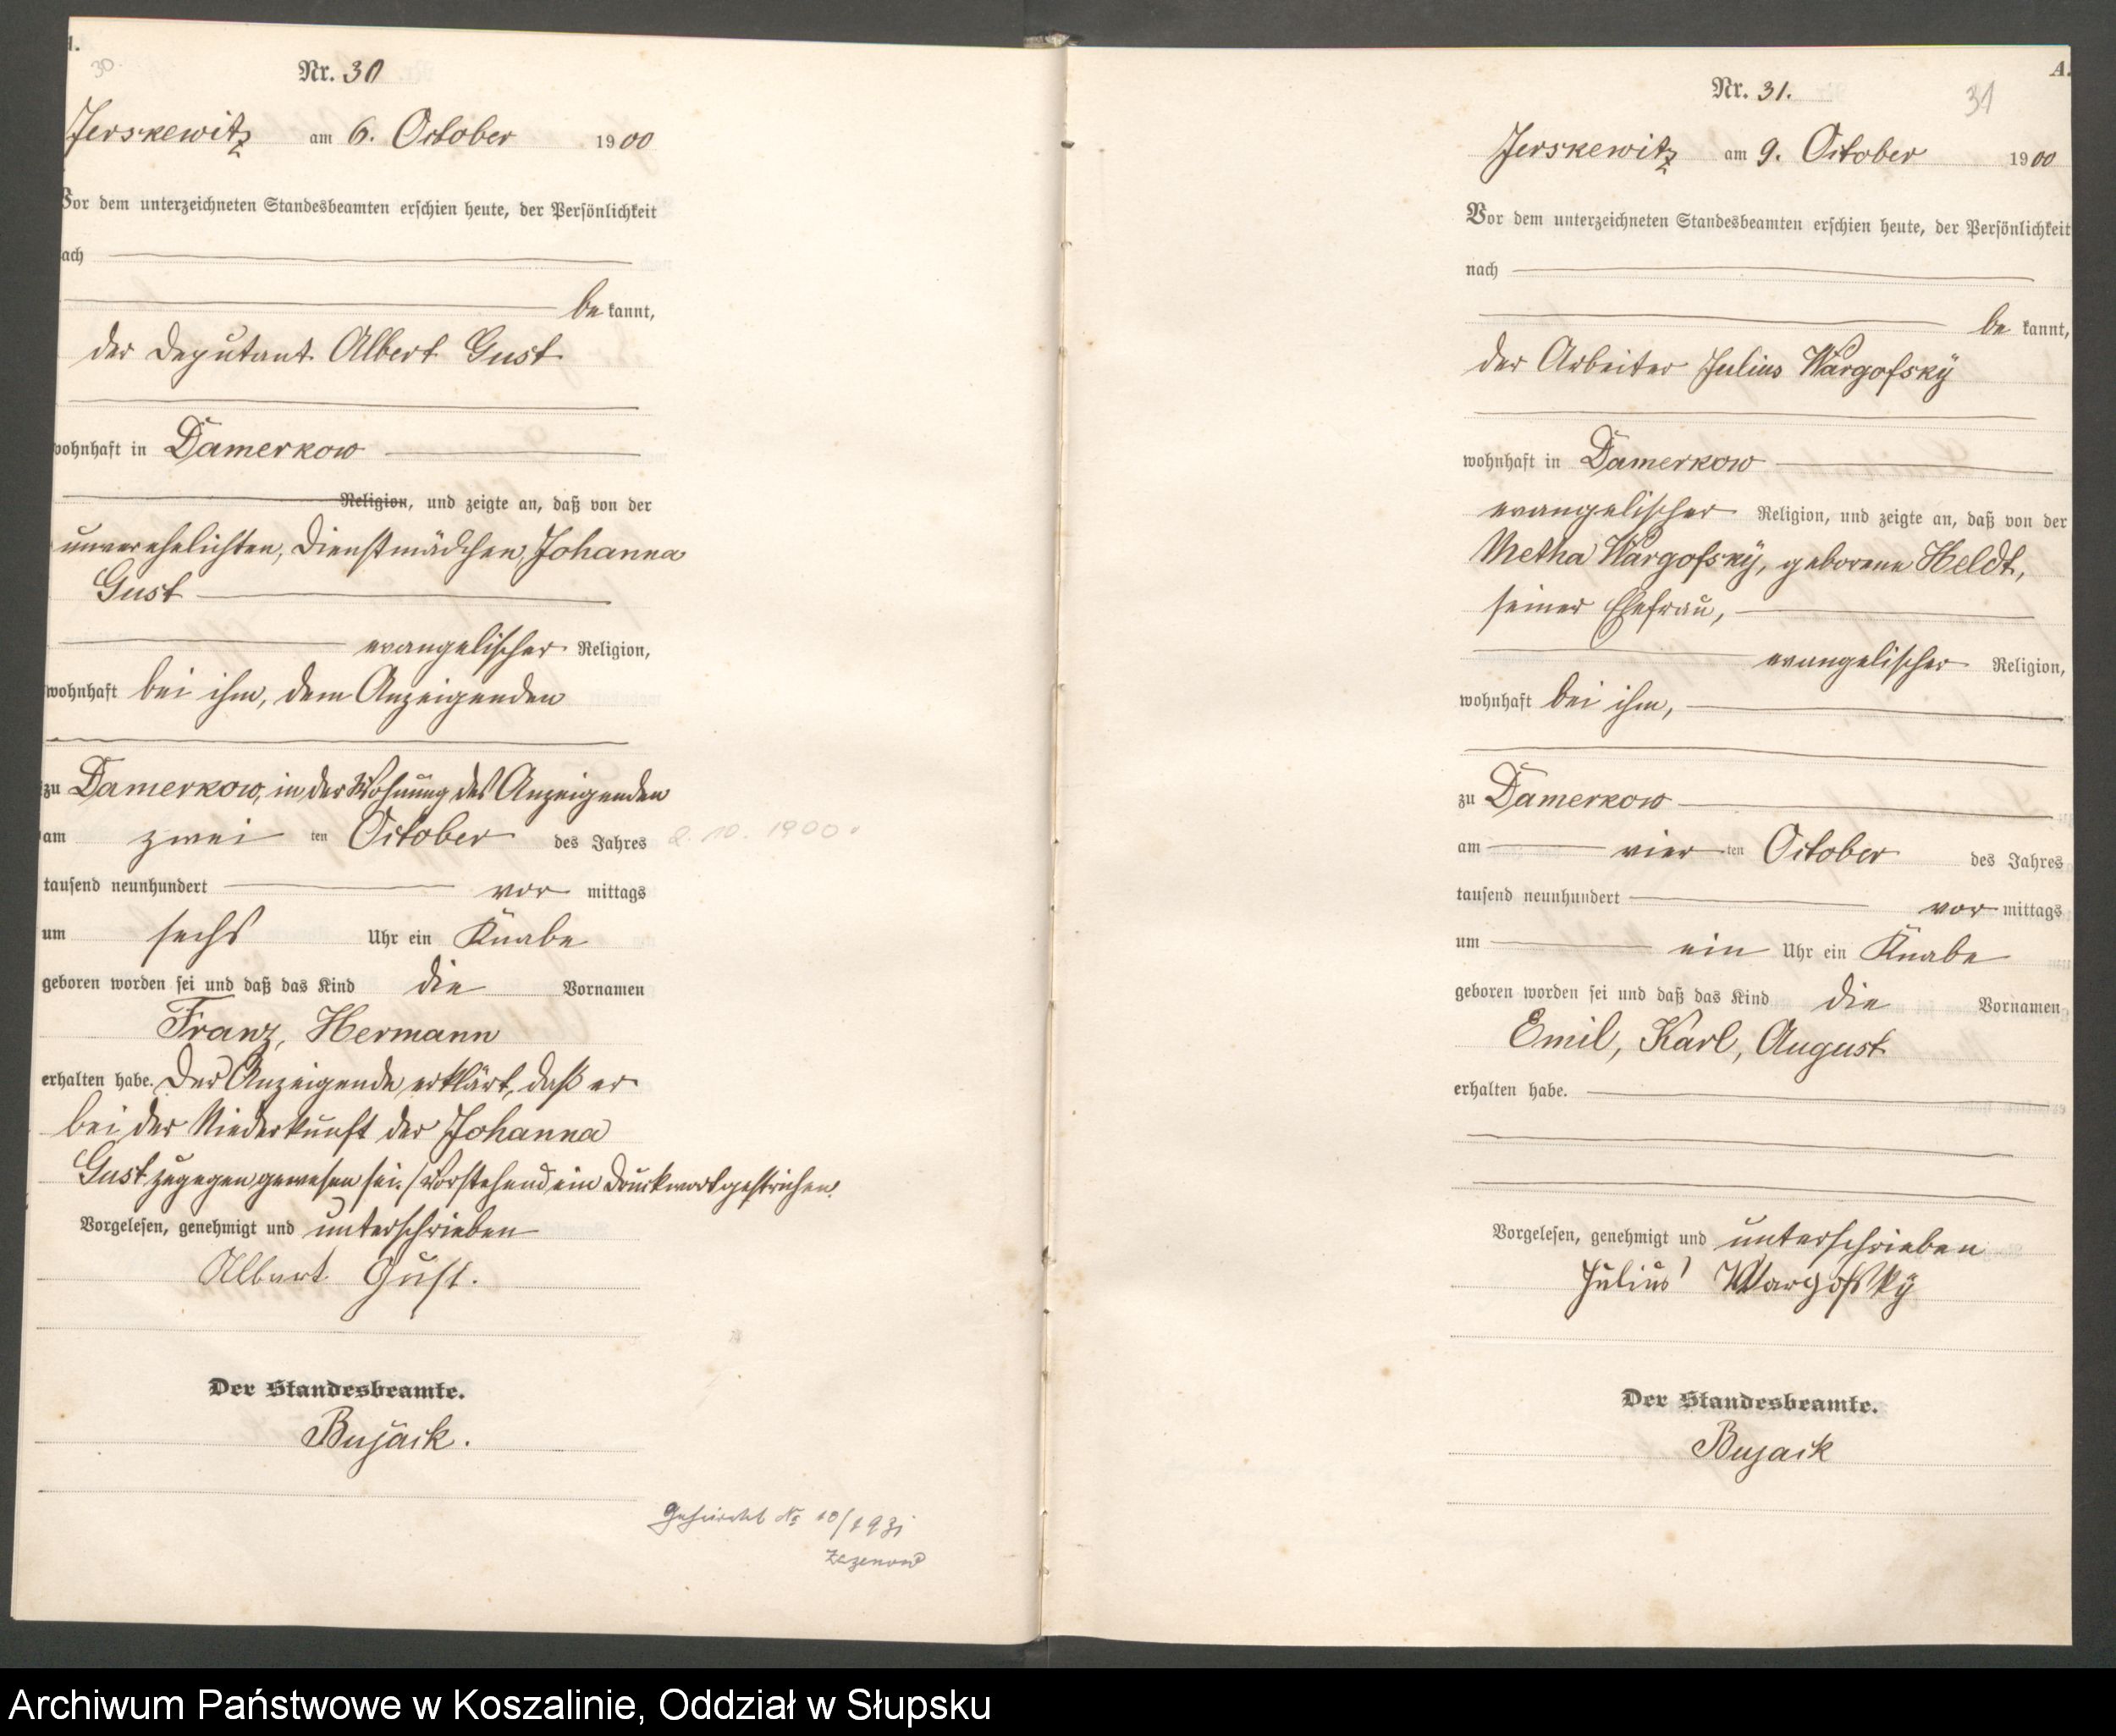 30.
Nr. 30
Jerskewitz am 6. October 1900
Vor dem unterzeichneten Standesbeamten erschien heute, der Persönlichkeit
ach
be kannt,
der Deputant Albert Gust
wohnhaft in Damerkow
Religion, und zeigte an, daß von der
unverehelichten, Dienstmädchen Johanna
Gust
evangelischer Religion,
wohnhaft bei ihm, dem Anzeigenden
zu Damerkow, in der Wohnung des Anzeigenden
am zwei ten October des Jahres 2. 10. 1900.
tausend neunhundert vor mittags
um sechs Uhr ein Knabe
geboren worden sei und daß das Kind die Vornamen
Franz, Hermann
erhalten habe. Der Anzeigende erklärt, daß er
bei der Niederkunft der Johanna
Gust zugegen gewesen sei. / Vorstehend ein Druckwort gestrichen.
Vorgelesen, genehmigt und unterschrieben
Albert Gust.
Der Standesbeamte.
Bujack.
Geheiratet No 10/1931
Zezenow
A.
Nr. 31.
31
Jerskewitz am 9. October 1900
Vor dem unterzeichneten Standesbeamten erschien heute, der Persönlichkeit
nach
be kannt,
der Arbeiter Julius Wargofsky
wohnhaft in Damerkow
evangelischer Religion, und zeigte an, daß von der
Metha Wargofsky, geborene Heldt,
seiner Ehefrau,
evangelischer Religion,
wohnhaft bei ihm,
zu Damerkow
am vier ten October des Jahres
tausend neunhundert vor mittags
um ein Uhr ein Knabe
geboren worden sei und daß das Kind die Vornamen
Emil, Karl, August
erhalten habe.
Vorgelesen, genehmigt und unterschrieben
Julius Wargofsky
Der Standesbeamte.
Bujack
Archiwum Państwowe w Koszalinie, Oddział w Słupsku